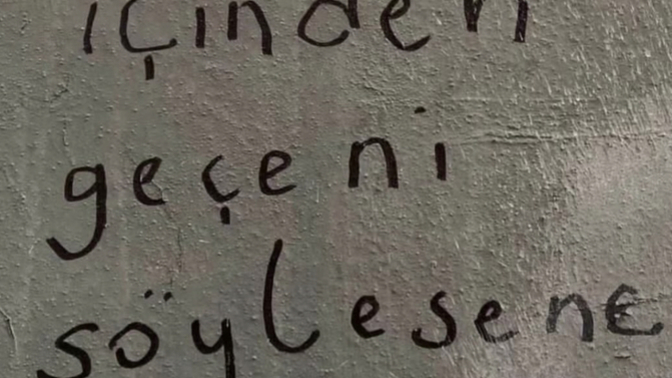 içinden
geçeni
söylesene